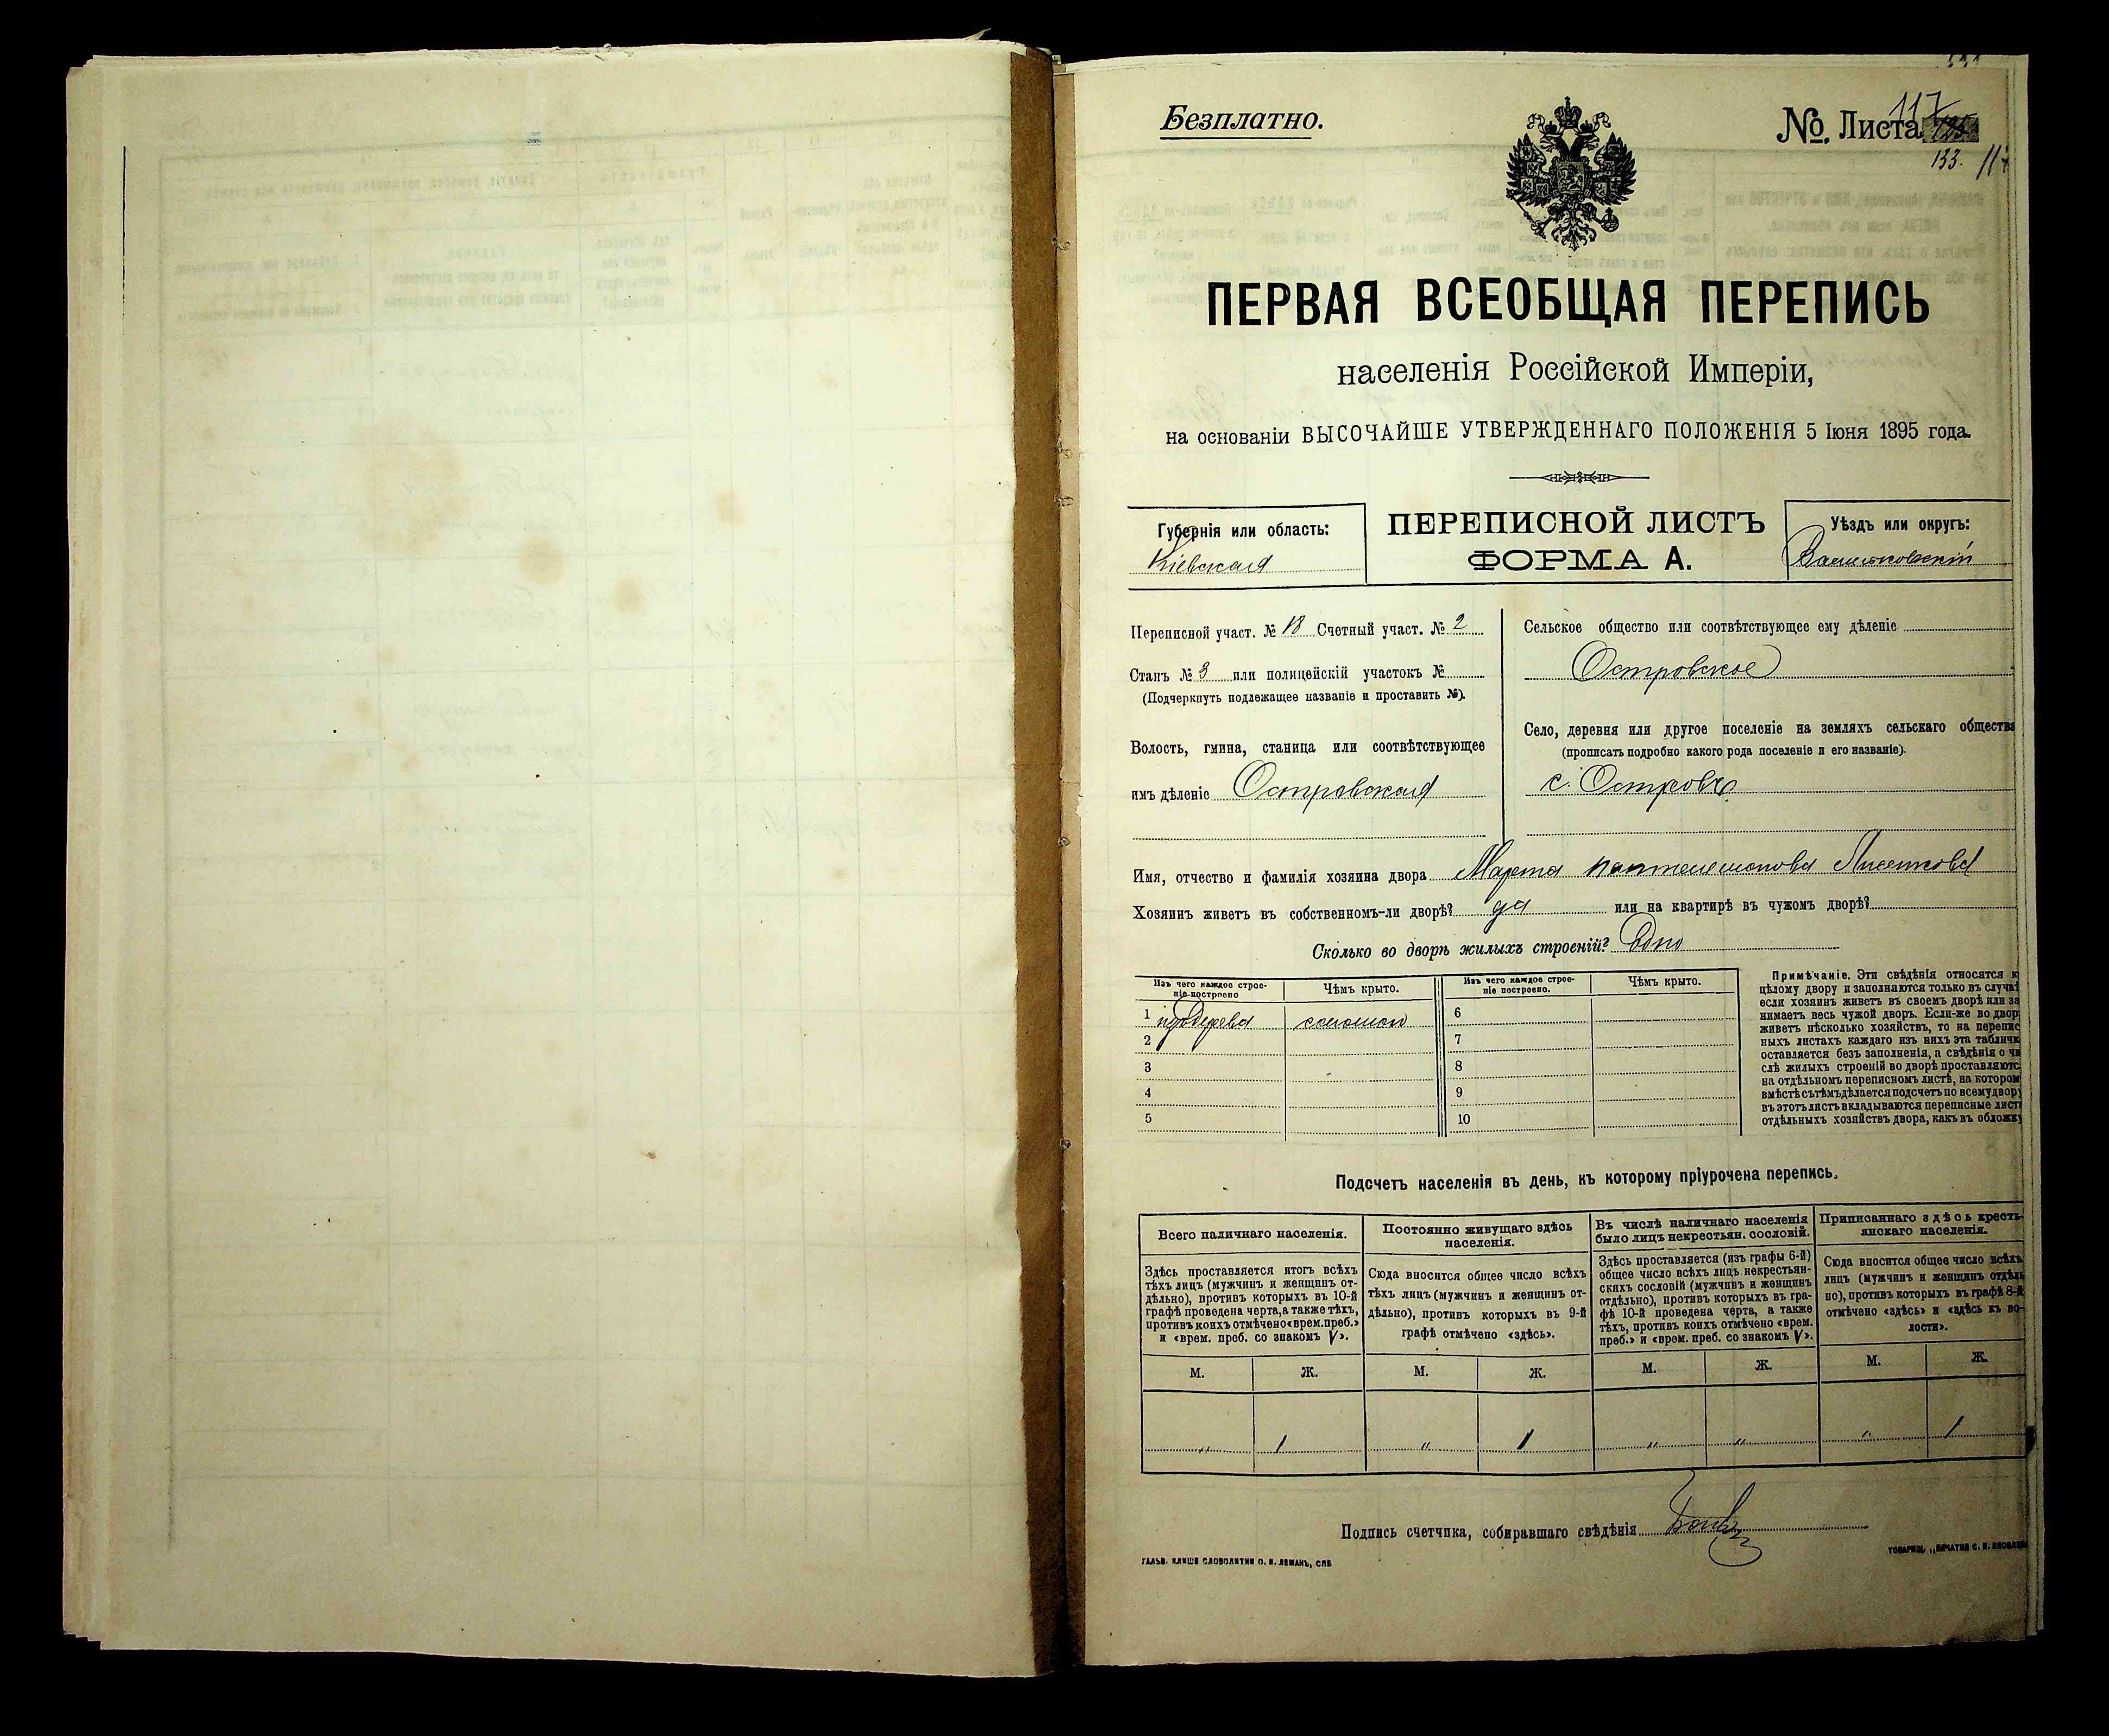 Безплатно.
№ Листа 117
133. 117
ПЕРВАЯ ВСЕОБЩАЯ ПЕРЕПИСЬ
населенія Россійской Имперіи,
на основаніи ВЫСОЧАЙШЕ УТВЕРЖДЕННАГО ПОЛОЖЕНІЯ 5 Іюня 1895 года.
Губернія или область:
Кіевская
ПЕРЕПИСНОЙ ЛИСТЪ
ФОРМА А.
Уѣздъ или округъ:
Васильковскій
Переписной участ. № 18 Счетный участ. № 2
Станъ № 3 или полицейскій участокъ №
(Подчеркнуть подлежащее названіе и проставить №).
Волость, гмина, станица или соотвѣтствующее
имъ дѣленіе Островская
Сельское общество или соотвѣтствующее ему дѣленіе
Островское
Село, деревня или другое поселеніе на земляхъ сельскаго общества
(прописать подробно какого рода поселеніе и его названіе).
с. Островъ
Имя, отчество и фамилія хозяина двора Марта Пантелемонова
Хозяинъ живетъ въ собственномъ-ли дворѣ? да или на квартирѣ въ чужомъ дворѣ?
Сколько во дворѣ жилыхъ строеній? Одно
Изъ чего каждое строе-
ніе построено
Чѣмъ крыто.
Изъ чего каждое строе-
ніе построено.
Чѣмъ крыто.
1 изъ дерева соломой 6
2 7
3 8
4 9
5 10
Примѣчаніе. Эти свѣдѣнія относятся к
цѣлому двору и заполняются только въ случаѣ
если хозяинъ живетъ въ своемъ дворѣ или за
нимаетъ весь чужой дворъ. Если-же во двор
живетъ нѣсколько хозяйствъ, то на перепис
ныхъ листахъ каждаго изъ нихъ эта табличк
оставляется безъ заполненія, а свѣдѣнія о чи
слѣ жилыхъ строеній во дворѣ проставляютс
на отдѣльномъ переписномъ листѣ, на котором
вмѣстѣ съ тѣмъ дѣлается подсчетъ по всему двору
въ этотъ листъ вкладываются переписные лист
отдѣльныхъ хозяйствъ двора, какъ въ обложку
Подсчетъ населенія въ день, къ которому пріурочена перепись.
Всего наличнаго населенія.
Здѣсь проставляется итогъ всѣхъ
тѣхъ лицъ (мужчинъ и женщинъ от-
дѣльно), противъ которыхъ въ 10-й
графѣ проведена черта, а также тѣхъ,
противъ коихъ отмѣчено «врем. преб.»
и «врем. преб. со знакомъ V».
Постоянно живущаго здѣсь
населенія.
Сюда вносится общее число всѣхъ
тѣхъ лицъ (мужчинъ и женщинъ от-
дѣльно), противъ которыхъ въ 9-й
графѣ отмѣчено «здѣсь».
Въ числѣ наличнаго населенія
было лицъ некрестьян. сословій.
Здѣсь проставляется (изъ графы 6-й)
общее число всѣхъ лицъ некрестьян-
скихъ сословій (мужчинъ и женщинъ
отдѣльно), противъ которыхъ въ гра-
фѣ 10-й проведена черта, а также
тѣхъ, противъ коихъ отмѣчено «врем.
преб.» и «врем. преб. со знакомъ V».
Приписаннаго здѣсь кресть-
янскаго населенія.
Сюда вносится общее число всѣхъ
лицъ (мужчинъ и женщинъ отдѣль
но), противъ которыхъ въ графѣ 8-й
отмѣчено «здѣсь» и «здѣсь къ во-
лости».
М. Ж. М. Ж. М. Ж. М. Ж.
" 1 " 1 " " " 1
Подпись счетчика, собиравшаго свѣдѣнія
ГАЛЬВ. КЛИШЕ СЛОВОЛИТНИ О. И. ЛЕМАНЪ, СПБ
ТОВАРИЩ. „ПЕЧАТНЯ С. П. ЯКОВЛЕВ